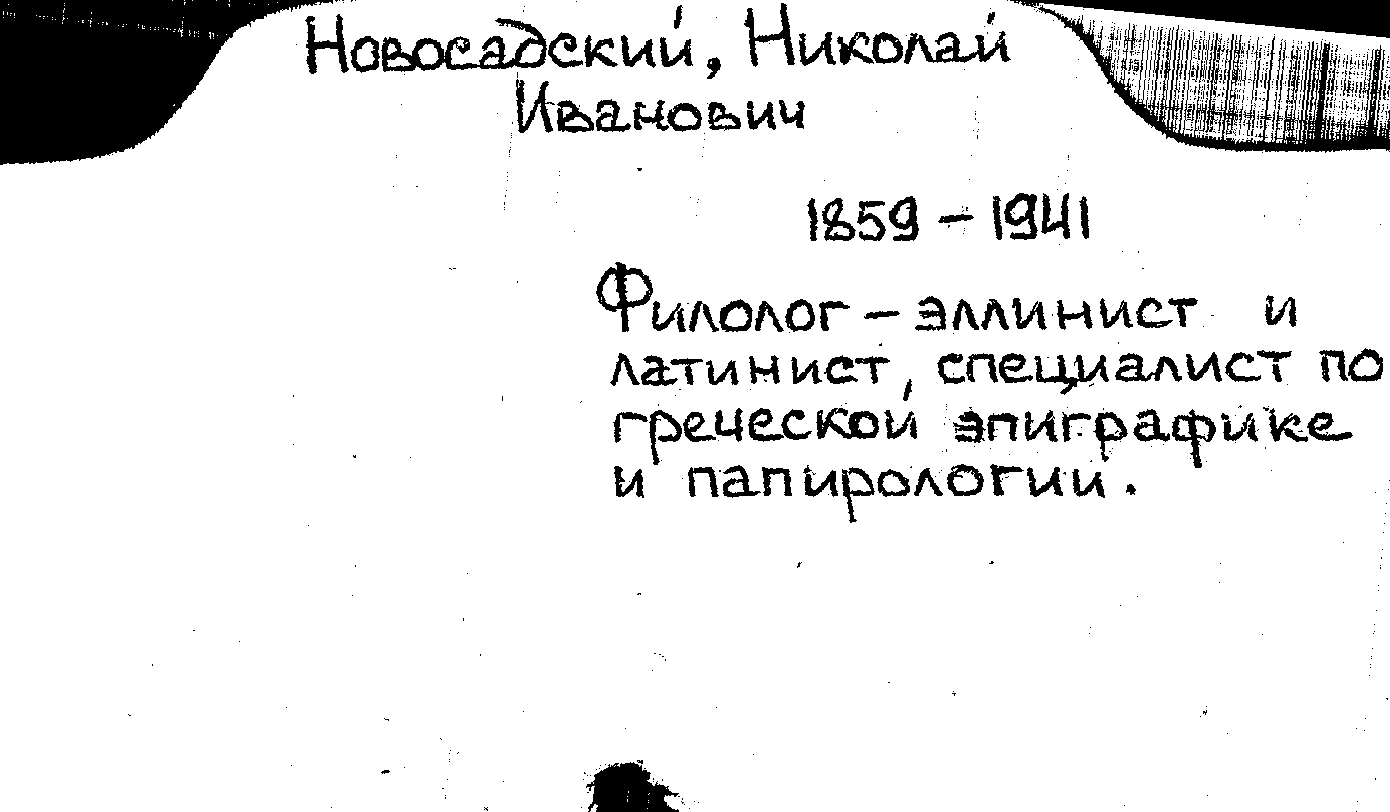 Новосадский, Николай
Иванович
1859 – 1941
Филолог – эллинист и
латинист, специалист по
греческой эпиграфике
и папирологии.